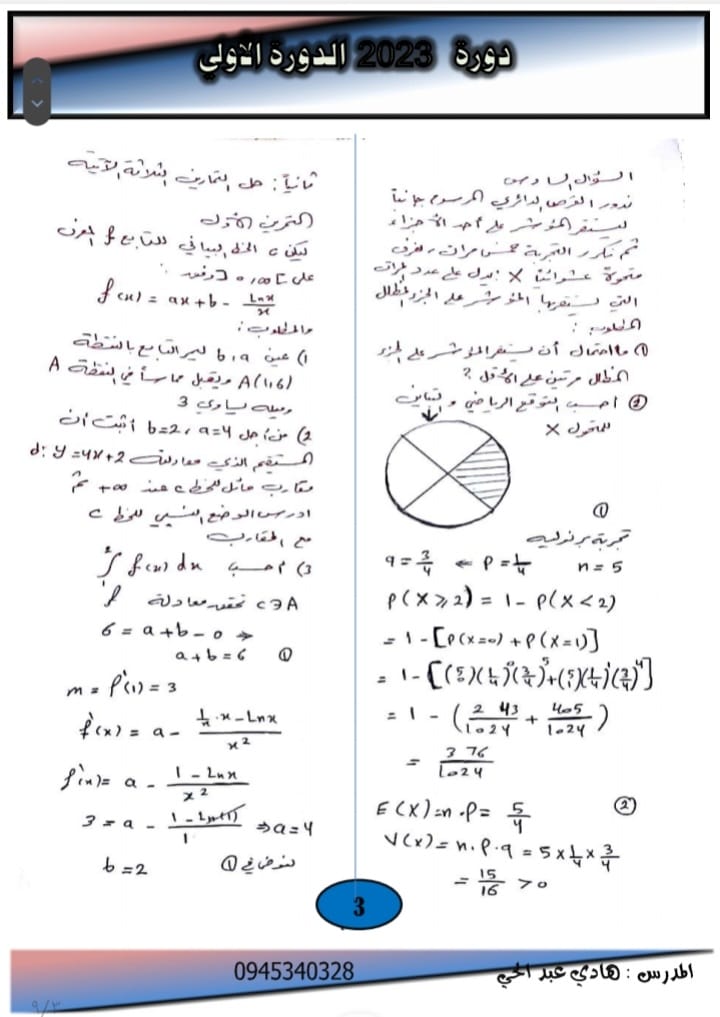 دورة 2023 الدورة الاولي
السؤال السادس
ندور القرص الدائري المرسوم جانباً
ليستقر المؤشر على أحد الأجزاء
ثم نكرر التجربة خمس مرات، نعرف
متحولاً عشوائياً X يدل على عدد المرات
التي يستقر بها المؤشر على الجزء المظلل
المطلوب:
① ما احتمال أن يستقر المؤشر على الجزء
المظلل مرتين على الأقل ?
② أحسب التوقع الرياضي و تباين
للمتحول X
①
تجربة برنوليه
n = 5 P = 1/4 ⇒ q = 3/4
P(X ⩾ 2) = 1 - P(X < 2)
= 1 - [P(X=0) + P(X=1)]
= 1 - [(5 0)(1/4)^0(3/4)^5 + (5 1)(1/4)^1(3/4)^4]
= 1 - (243/1024 + 405/1024)
= 376/1024
E(X) = n.P = 5/4 ②
V(X) = n.P.q = 5 × 1/4 × 3/4
= 15/16 > 0
ثانياً: حل التمارين الثلاثة الآتية
التمرين الأول
ليكن C الخط البياني للتابع f المعرف
على ]0, ∞[ وفق:
f(x) = ax + b - Lnx/x
والمطلوب:
1) عين a, b ليمر التابع بالنقطة
A(1,6) ويقبل مماساً في النقطة A
وميله يساوي 3
2) من أجل a=4, b=2 أثبت أن
المستقيم الذي معادلته d: y = 4x+2
مقارب مائل للخط C عند +∞ ثم
ادرس الوضع النسبي للخط C
مع المقارب
3) احسب ∫ f(x) dx
A∈C تحقق معادلة f
6 = a + b - 0 ⇒
a + b = 6 ①
m = f'(1) = 3
f'(x) = a - (1/x . x - Lnx)/x²
f'(x) = a - (1 - Lnx)/x²
3 = a - (1 - Ln(1))/1 ⇒ a = 4
نعوض في ① b = 2
3
المدرس : هادي عبد الحي
0945340328
٩/٣